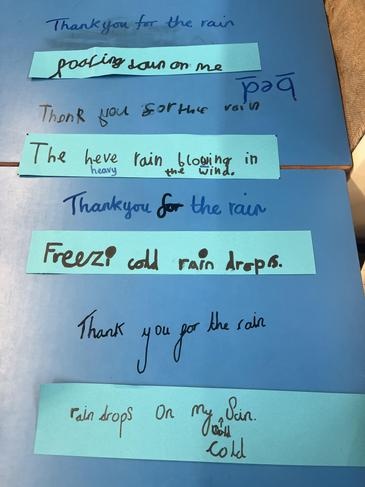 Thankyou for the rain
pooring down on me
bed
Thank you for the rain
The heve rain blowing in
heavy the wind.
Thankyou for the rain
Freezi cold rain drops.
Thank you for the rain
rain drops on my Scin.
cold